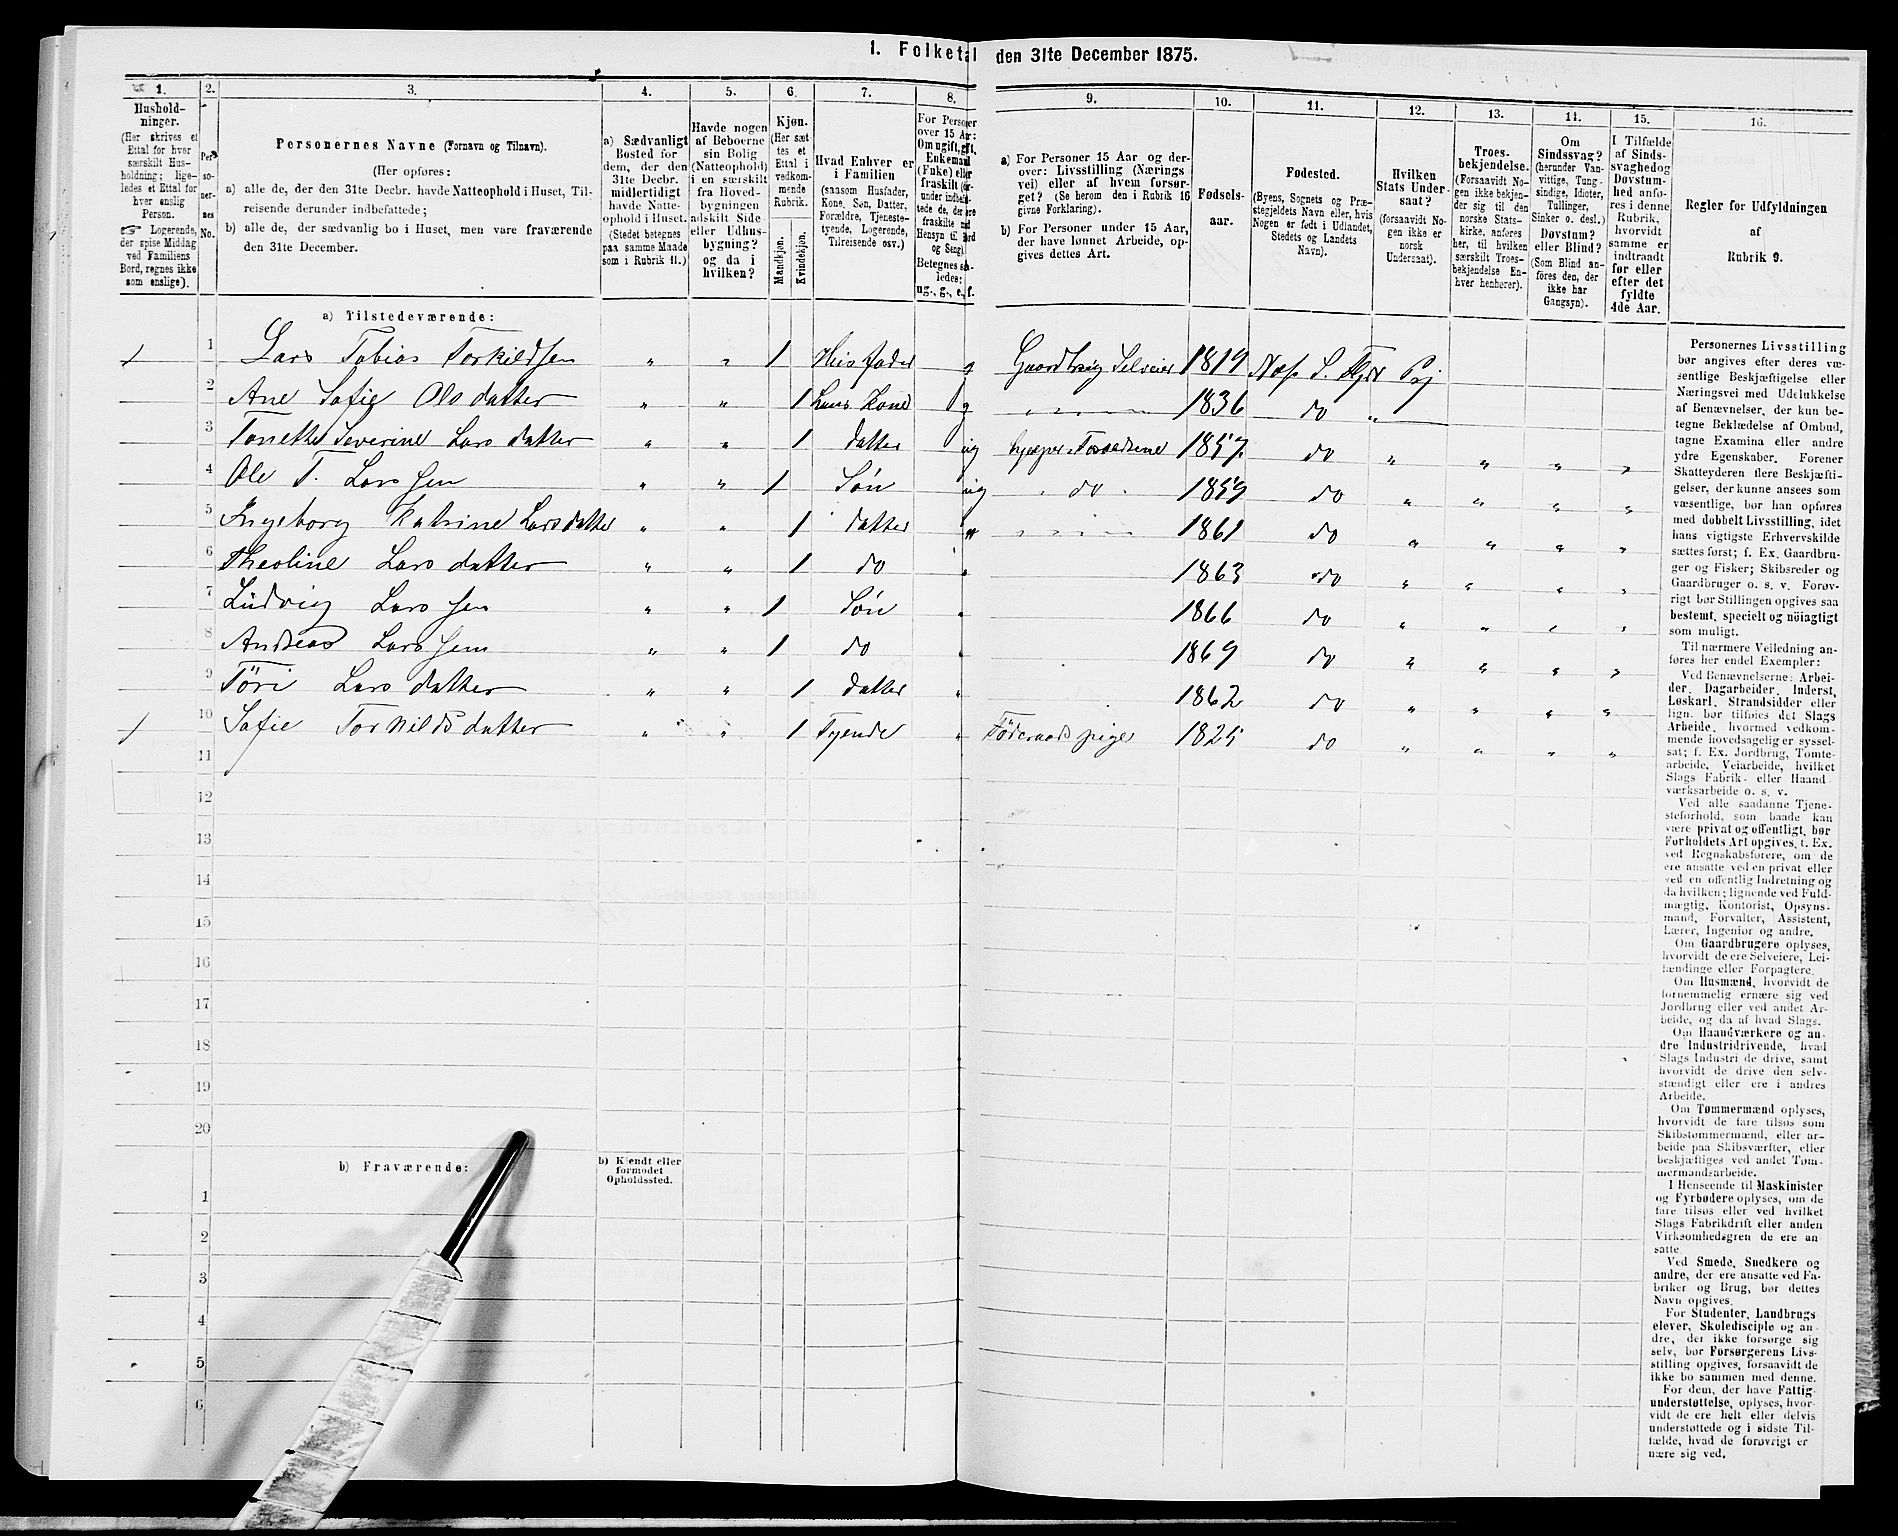 1. Folketal den 31te December 1875.
1. 2. 3. 4. 5. 6. 7. 8. 9. 10. 11. 12. 13. 14. 15. 16.
Hushold-
ninger.
(Her skrives et
Ettal for hver
særskilt Hus-
holdning; lige-
ledes et Ettal for
hver enslig
Person.
☞ Logerende,
der spise Middag
ved Familiens
Bord, regnes ikke
som enslige).
Per-
so-
ner-
nes
No.
Personernes Navne (Fornavn og Tilnavn).
(Her opføres:
a) alle de, der den 31te Decbr. havde Natteophold i Huset, Til-
reisende derunder indbefattede;
b) alle de, der sædvanlig bo i Huset, men vare fraværende
den 31te December.
a) Sædvanligt
Bosted for
dem, der den
31te Decbr.
midlertidigt
havde Natte-
ophold i Huset.
(Stedet betegnes
paa samme Maade
som i Rubrik 11.)
Havde nogen
af Beboerne
sin Bolig
(Natteophold)
i en særskilt
fra Hoved-
bygningen
adskilt Side-
eller Udhus-
bygning?
og da i
hvilken?
Kjøn.
(Her sæt-
tes et
Ettal i
vedkom-
mende
Rubrik.
Mandkjøn.
Kvindekjøn.
Hvad Enhver er
i Familien
(saasom Husfader,
Kone, Søn, Datter,
Forældre, Tjeneste-
tyende, Logerende,
Tilreisende osv.)
For Personer
over 15 Aar:
Om ugift, gift,
Enkemand
(Fuke) eller
fraskilt (der-
under indbefat-
tede de, der ere
fraskilte med
Hensyn til Bord
og Seng).
Betegnes saa-
ledes:
ug., g., e., f.
a) For Personer 15 Aar og der-
over: Livsstilling (Nærings-
vei) eller af hvem forsør-
get? (Se herom den i Rubrik 16
givne Forklaring).
b) For Personer under 15 Aar,
der have lønnet Arbeide, op-
gives dettes Art.
Fødsels-
aar.
Fødested.
(Byens, Sognets og Præ-
stegjeldets Navn eller, hvis
Nogen er født i Udlandet,
Stedets og Landets
Navn).
Hvilken
Stats Under-
saat?
(forsaavidt No-
gen ikke er
norsk
Undersaat).
Troes-
bekjendelse.
(Forsaavidt No-
gen ikke bekjen-
der sig til den
norske Stats-
kirke, anføres
her, til hvilken
særskilt Troes-
bekjendelse En-
hver henhører).
Om
Sindssvag?
(herunder Van-
vittige, Tung-
sindige, Idioter,
Tullinger,
Sinker o. desl.)
Døvstum?
eller Blind?
(Som Blind an-
føres den, der
ikke har
Gangsyn).
I Tilfælde
af Sinds-
svaghed og
Døvstum-
hed anfø-
res i denne
Rubrik,
hvorvidt
samme er
indtraadt
før eller
efter det
fyldte
4de Aar.
Regler for Udfyldningen
af
Rubrik 9.
a) Tilstedeværende:
1 1 Lars Tobias Torkildsen " " 1 Huusfader g Gaardbrug Selveier 1819
2 Ane Sofie Olsdatter " " 1 hans Kone g " 1836 do "
3 Tonette Severine Larsdatter " " 1 datter ug 1857 do " " " "
4 Ole T. Larssen " " 1 Søn ug do 1859 do " " " "
5 Ingeborg Katrine Larsdatter " " 1 datter " 1861 do " " " "
6 Theoline Larsdatter " " 1 do " 1863 do " " " "
7 Ludvig Larssen " " 1 Søn " 1866 do " " " "
8 Andreas Larssen " " 1 do " 1869 do " " " "
9 Töri Larsdatter " " 1 datter " 1862 do " " " "
1 10 Sofie Torkildsdatter " " 1 Tyende " Föderaadspige 1825 do " " " "
11
12
13
14
15
16
17
18
19
20
b) Fraværende:
b) Kjendt eller
formodet
Opholdssted.
1
2
3
4
5
6
Personernes Livsstilling
bør angives efter deres væ-
sentlige Beskjæftigelse eller
Næringsvei med Udelukkelse
af Benævnelser, der kun be-
tegne Beklædelse af Ombud,
tagne Examina eller andre
ydre Egenskaber. Forener
Skatteyderen flere Beskjæfti-
gelser, der kunne ansees som
væsentlige, bør han opføres
med dobbelt Livsstilling, idet
hans vigtigste Erhvervskilde
sættes først; f. Ex. Gaardbru-
ger og Fisker; Skibsreder og
Gaardbruger o. s. v. Forøv-
rigt bør Stillingen opgives saa
bestemt, specielt og nöiagtigt
som muligt.
Til nærmere Veiledning an-
føres her endel Exempler:
Ved Benævnelserne: Arbei-
der, Dagarbeider, Inderst,
Løskarl, Strandsidder eller
lign. bør tilføies det Slags
Arbeide, hvormed vedkom-
mende hovedsagelig er syssel-
sat; f. Ex. Jordbrug, Tomte-
arbeide, Veiarbeide, hvilket
Slags Fabrik- eller Haand-
værksarbeide o. s. v.
Ved alle saadanne Tjene-
steforhold, som baade kan
være privat og offentligt, bør
Forholdets Art opgives, t. Ex.
ved Regnskabsførere, om de
ere ansatte ved en privat eller
ved en offentlig Indretning og
da hvilken; lignende ved Fuld-
mægtig, Kontorist, Opsyns-
mand, Forvalter, Assistent,
Lærer, Ingeniør og andre.
Om Gaardbrugere oplyses,
hvorvidt de ere Selveiere, Lei-
lændinge eller Forpagtere.
Om Husmænd, hvorvidt de
fornemmelig ernære sig ved
Jordbrug eller ved andet Ar-
beide, og da af hvad Slags.
Om Haandværkere og an-
dre Industridrivende, hvad
Slags Industri de drive, samt
hvorvidt de drive den selv-
stændigt eller ere i andres
Arbeide.
Om Tømmermænd oplyses,
hvorvidt de fare tilsøs som
Skibstømmermænd, eller ar-
beide paa Skibsværfter, eller
beskjæftiges ved andet Tøm-
mermandsarbeide.
I Henseende til Maskinister
og Fyrbødere oplyses, om de
fare tilsøs eller ved hvilket
Slags Fabrikdrift eller anden
Virksomhedsgren de ere an-
satte.
Ved Smede, Snedkere og
andre, der ere ansatte ved Fa-
briker og Brug, bør dettes
Navn opgives.
For Studenter, Landbrugs-
elever, Skoledisciple og an-
dre, der ikke forsørge sig
selv, bør Forsørgerens Livs-
stilling opgives, forsaavidt de
ikke bo sammen med denne.
For dem, der have Fattig-
understøttelse, oplyses, hvor-
vidt de ere helt eller delvis
understøttede og i sidste Til-
fælde, hvad de forøvrigt er
nære sig ved.